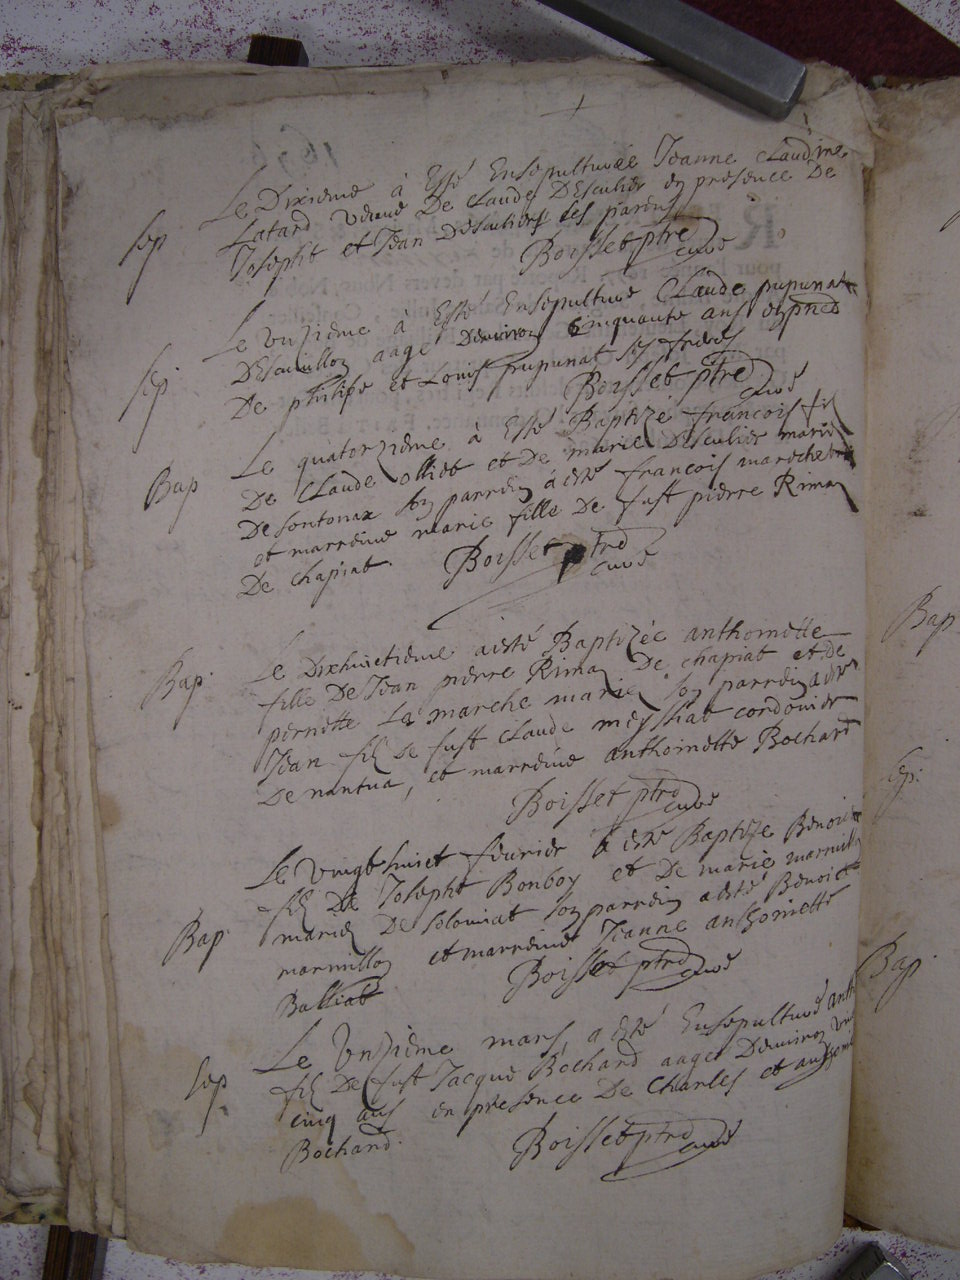 Le Dixieme à Esté Ensepulturée Jeanne Claudine
sep Latard veuve De Claude Desculier en presence De
Joseph et Jean Desculiers ses parens
Boisset ptre
curé
Le unzieme à Esté Ensepulturé Claude pupunat
sep Descuvillon aagé Denviron Cinquante ans en pnce
De philipe et Louis pupunat ses freres
Boisset ptre
curé
Le quatorzieme a Esté Baptizé francois fils
Bap De Claude olliet et De marie Desculier mariez
De sontonax son parrein à esté francois marechet
et marreine marie fille De fust pierre Rimaz
De chapiat. Boisset ptre
curé
Le Dixhuictieme a esté Baptizée anthoinette
Bap. fille De Jean pierre Rimaz De chapiat et de
pernette La marche mariez son parrein a esté
Jean filz de fust Claude meyssiat cordonier
De nantua, et marreine anthoinette Bochard
Boisset ptre
curé
Le vingt huict febvrier a esté Baptize Benoist
filz De Joseph Bonboy et De marie marmillon
Bap. mariez De soloniat son parrein a esté Benoict
marmillon et marreine Jeanne anthoinette
Balliat Boisset ptre
curé
Le Unzieme mars, a esté Ensepulturé anth
Sep filz De fust Jacque Bochard aagé Denviron vin
cinq ans en presence De Charles et anthoine
Bochard. Boisset ptre
curé
Bap.
Sep.
Bap.